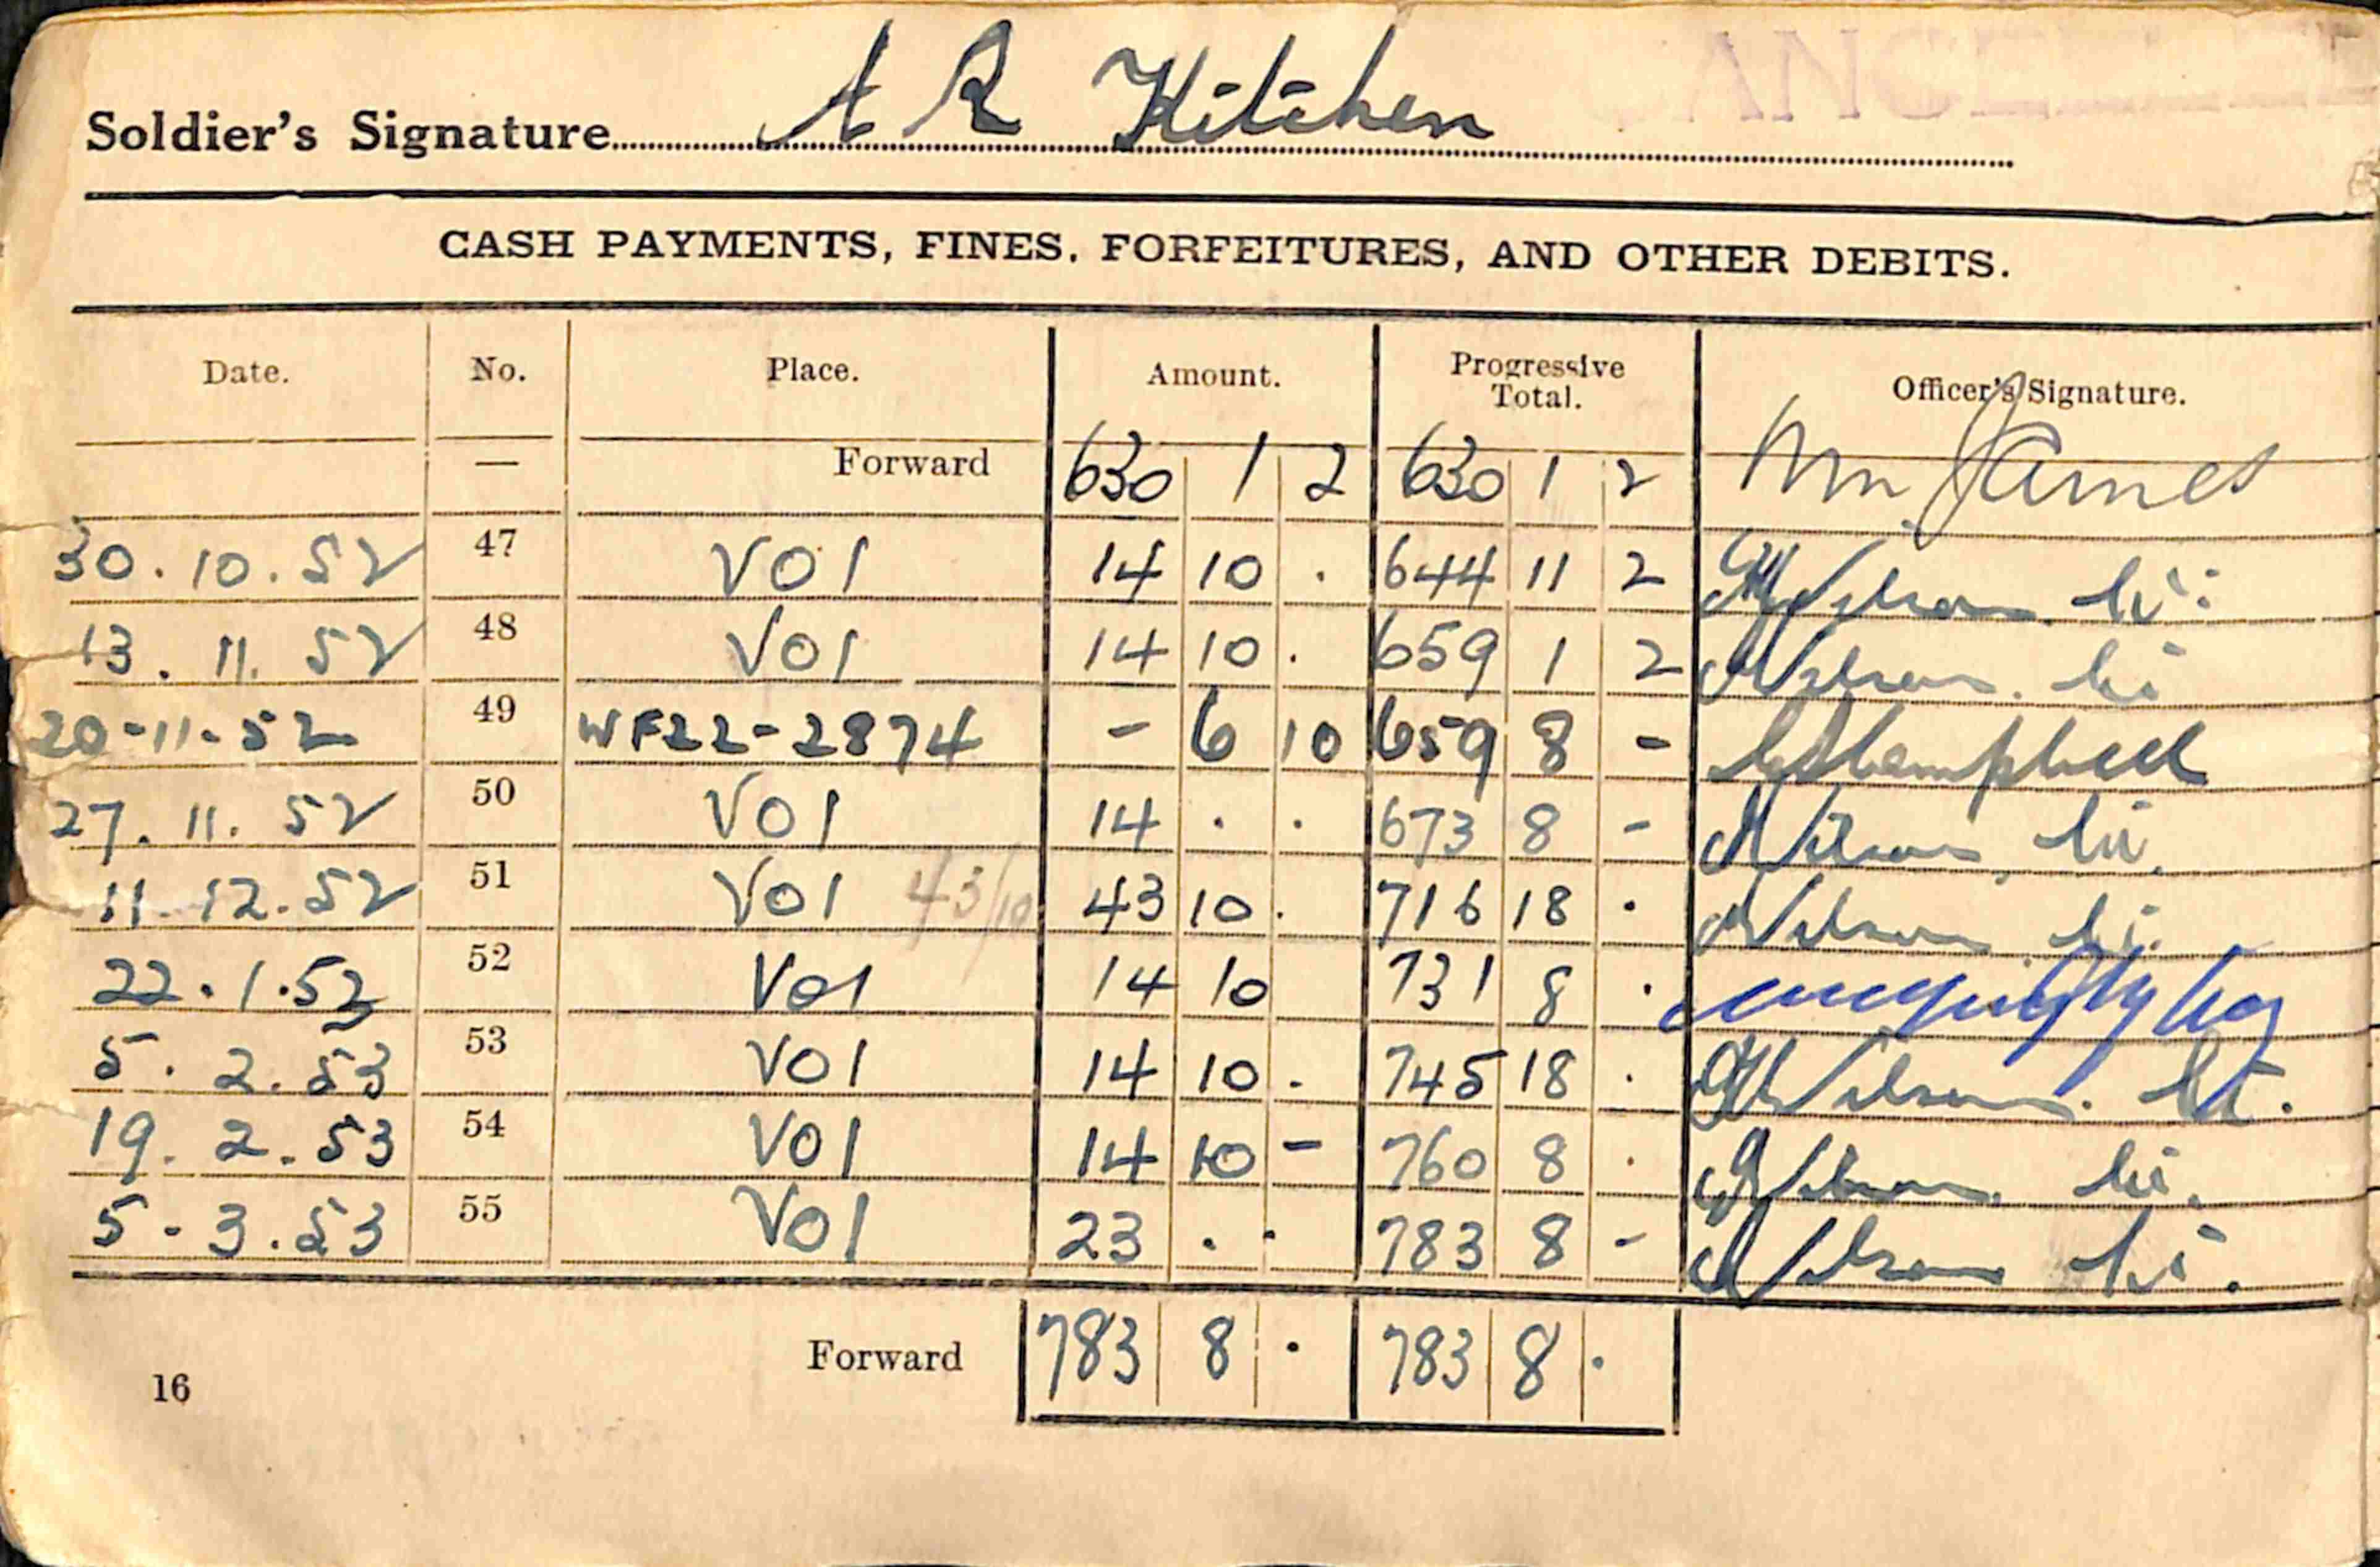 Soldier's Signature A R Kitchen
CASH PAYMENTS, FINES, FORFEITURES, AND OTHER DEBITS.
Date. No. Place. Amount. Progressive Total. Officer's Signature.
— Forward 630 1 2 630 1 2 James
30.10.52 47 VO1 14 10 . 644 11 2 Wilson Lt.
13.11.52 48 VO1 14 10 . 659 1 2 Wilson. Lt
20-11-52 49 WF22-2874 - 6 10 659 8 - Campbell
27.11.52 50 VO1 14 . . 673 8 - Wilson Lt.
11.12.52 51 VO1 43/10 43 10 . 716 18 . Wilson Lt.
22.1.53 52 VO1 14 10 731 8 .
5.2.53 53 VO1 14 10 . 745 18 . Wilson. Lt.
19.2.53 54 VO1 14 10 - 760 8 . Wilson. Lt.
5-3.53 55 VO1 23 . . 783 8 - Wilson Lt.
Forward 783 8 . 783 8 .
16